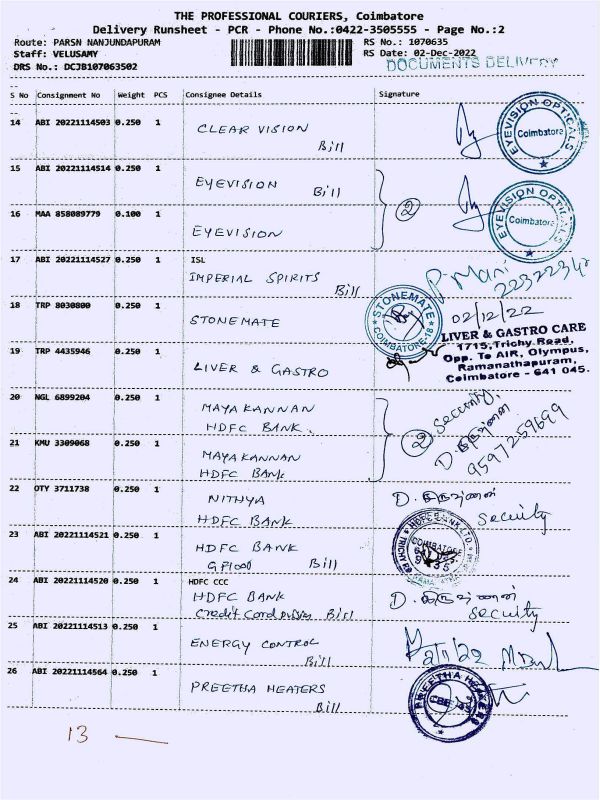 THE PROFESSIONAL COURIERS, Coimbatore
Delivery Runsheet - PCR - Phone No.:0422-3505555 - Page No.:2
Route: PARSN NANJUNDAPURAM RS No.: 1070635
Staff: VELUSAMY RS Date: 02-Dec-2022
DRS No.: DCJB107063502 DOCUMENTS DELIVERY
S No Consignment No Weight PCS Consignee Details Signature
14 ABI 20221114503 0.250 1 CLEAR VISION Bill
EYEVISION OPTICALS Coimbatore
15 ABI 20221114514 0.250 1 EYEVISION Bill
2
16 MAA 858089779 0.100 1 EYEVISION
EYEVISION OPTICALS Coimbatore
17 ABI 20221114527 0.250 1 ISL
IMPERIAL SPIRITS Bill
P. Mani
18 TRP 8030800 0.250 1 STONEMATE
STONEMATE COIMBATORE-18
02/12/22
19 TRP 4435946 0.250 1 LIVER & GASTRO
LIVER & GASTRO CARE
1715, Trichy Road,
Opp. To AIR, Olympus,
Ramanathapuram,
Coimbatore - 641 045.
20 NGL 6899204 0.250 1 MAYAKANNAN
HDFC BANK.
2 Security,
21 KMU 3309068 0.250 1 MAYAKANNAN
HDFC BANK
9597259699
22 OTY 3711738 0.250 1 NITHYA
HDFC BANK
Security
23 ABI 20221114521 0.250 1 HDFC BANK
Bill
HDFC BANK LTD. COIMBATORE
24 ABI 20221114520 0.250 1 HDFC CCC
HDFC BANK
Credit Card Bill
Security
25 ABI 20221114513 0.250 1 ENERGY CONTROL
Bill
26 ABI 20221114564 0.250 1 PREETHA HEATERS
Bill
PREETHA HEATERS
13